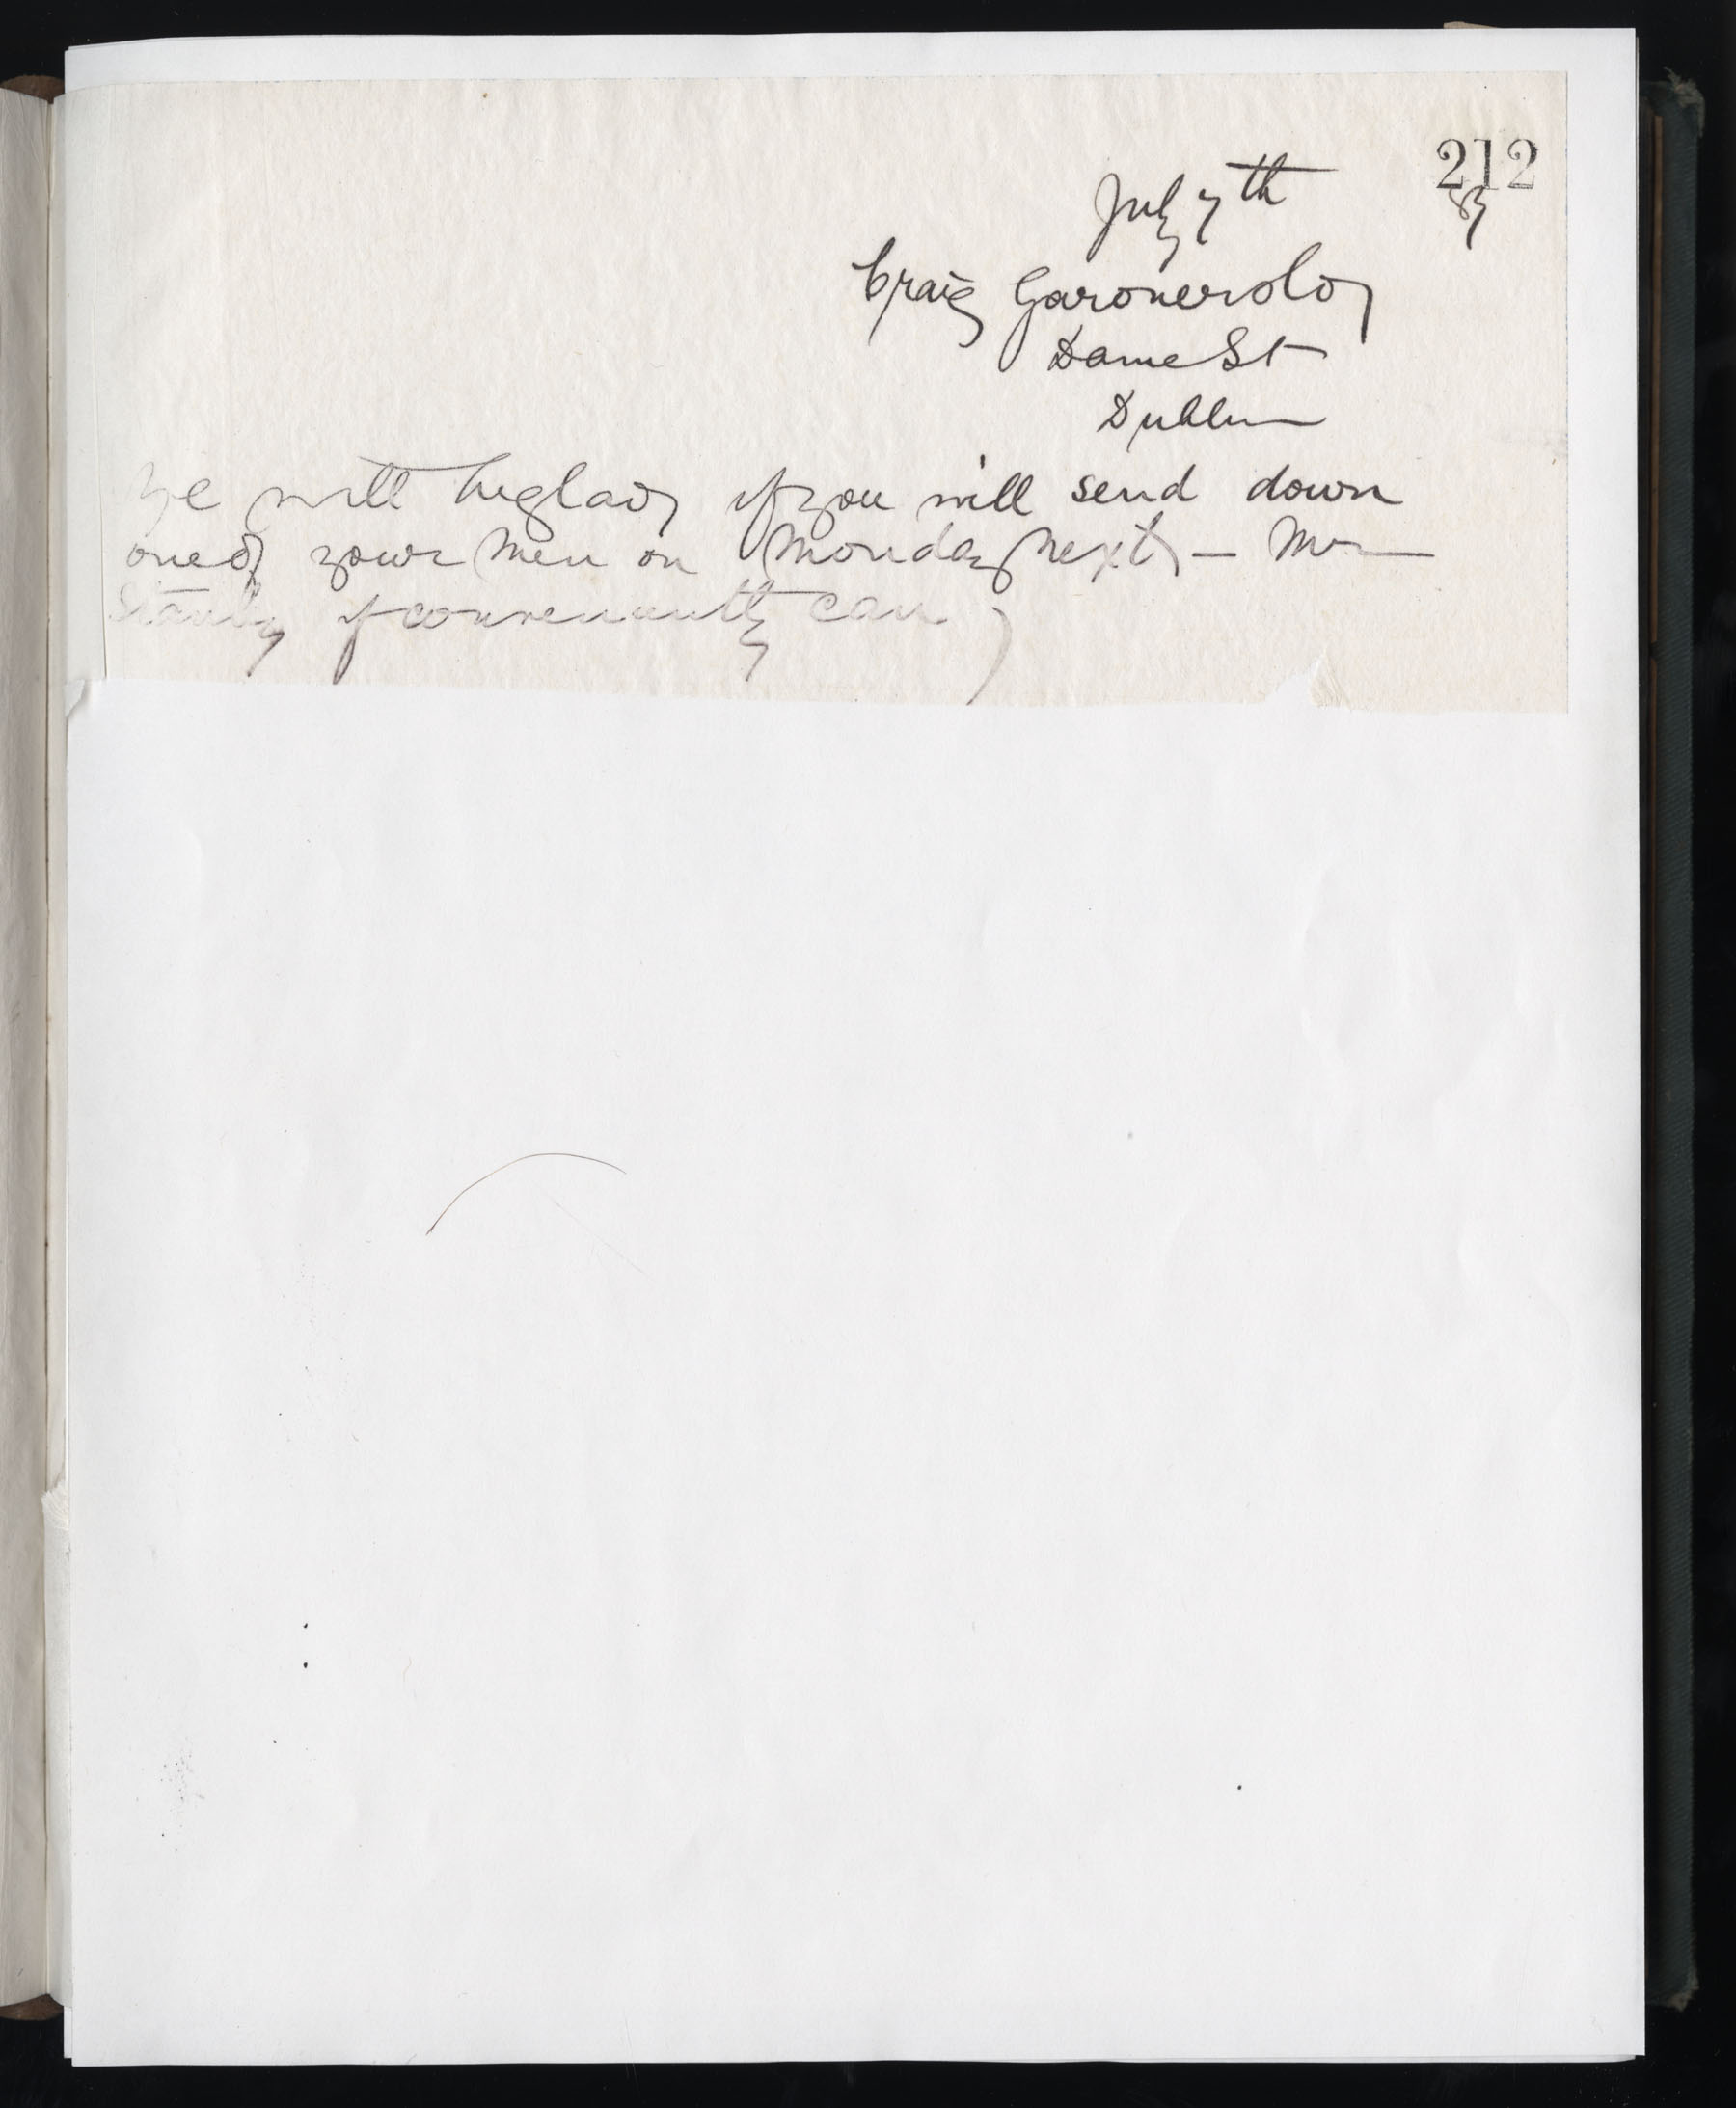 212
July 7th
Craig Gardner & Co
Dame St
Dublin
We will be glad if you will send down
one of your men on Monday next — Mr
Stanley if convenient can